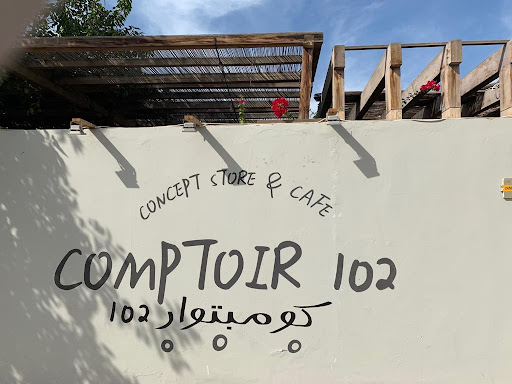 CONCEPT STORE & CAFE
COMPTOIR 102
كومبتوار 102